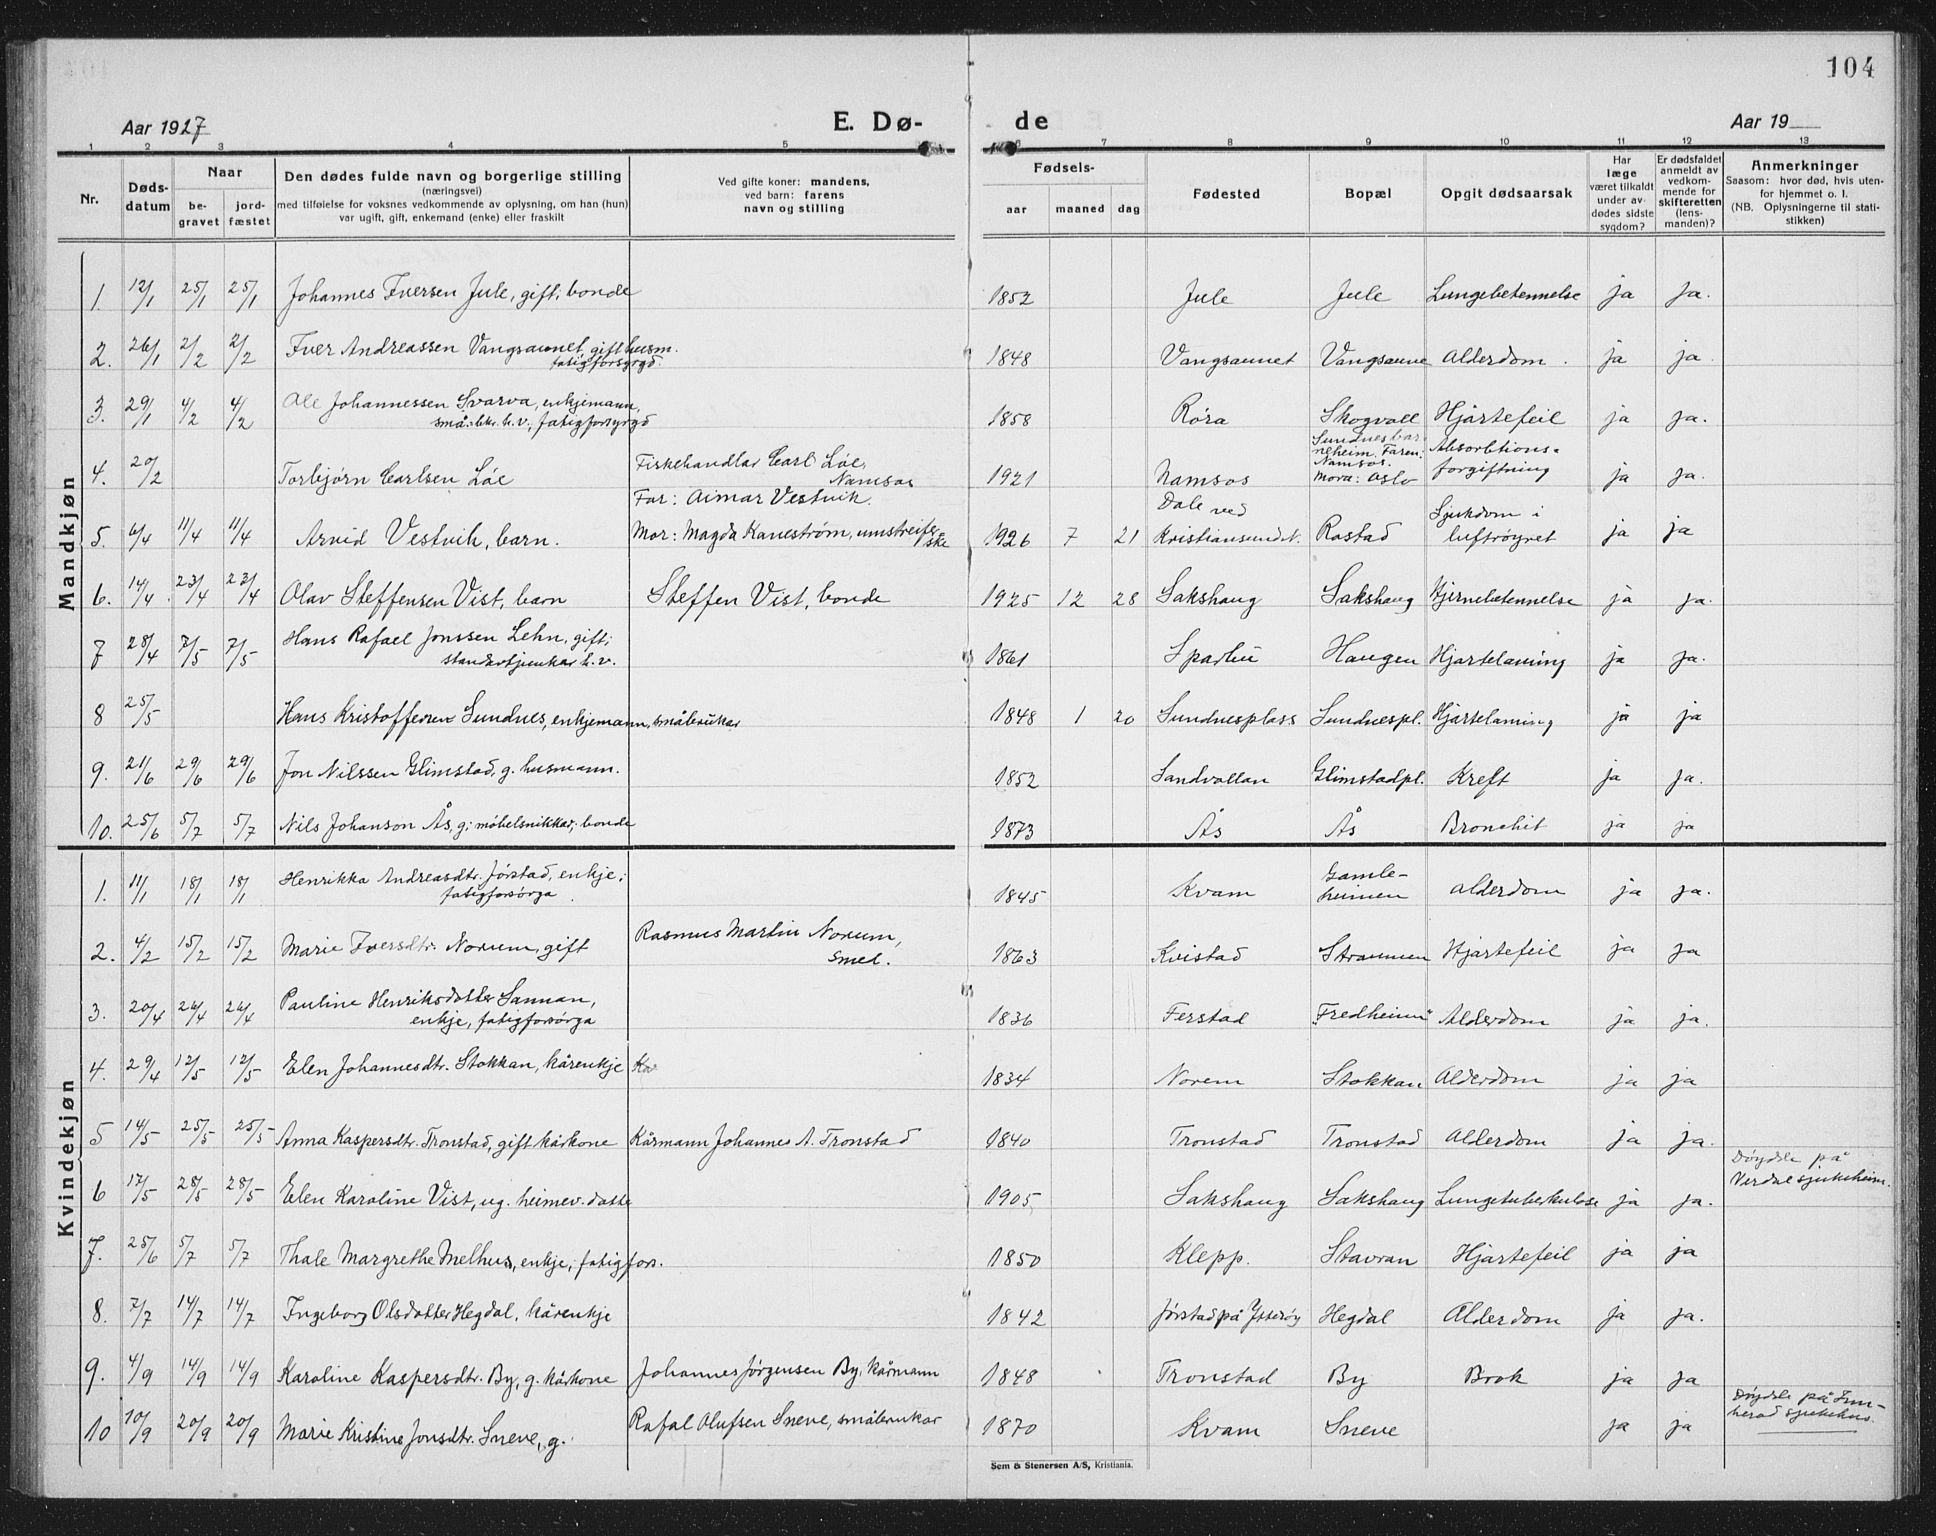 104
Aar 1927 E. Dø- de Aar 19
1 2 3 4 5 6 7 8 9 10 11 12 13
Nr. Døds-datum Naar be-gravet jord-fæstet Den dødes fulde navn og borgerlige stilling
(næringsvei)
med tilføielse for voksnes vedkommende av oplysning, om han (hun)
var ugift, gift, enkemand (enke) eller fraskilt
Ved gifte koner: mandens,
ved barn: farens
navn og stilling
Fødsels-
aar maaned dag
Fødested Bopæl Opgit dødsaarsak
Har læge været tilkaldt under av-dødes sidste sygdom?
Er dødsfaldet anmeldt av vedkom-mende for skifteretten (lens-manden)?
Anmerkninger
Saasom: hvor død, hvis uten-
for hjemmet o. l.
(NB. Oplysningerne til stati-
stikken)
Mandkjøn
1. 12/1 25/1 25/1 Johannes Iversen Jule, gift; bonde 1852 Jule Jule Lungebetennelse ja ja.
2. 26/1 2/2 2/2 Iver Andreassen Vangsaunet, gift husm. fatigforsyrgd. 1848 Vangsaunet Vangsaune Alderdom. ja ja.
3. 29/1 4/2 4/2 Ole Johannessen Svarva, enkjemann,
små.bkr. h.v., fatigforsyrgd 1858 Røra Skogvoll Hjartefeil ja ja.
4. 20/2 Torbjørn Carlsen Løe Fiskehandlar Carl Løe, Namsos 1921 Namsos Sundnes bar-
neheim. Faren:
Namsos.
Mora: Oslo Absorbtions-
forgiftning ja ja.
5. 6/4 11/4 11/4 Arvid Vestvik, barn. Far: Aimar Vestvik.
Mor: Magda Kanestrøm, umstreifer-
ske 1926 7 21 Dale ved
Kristiansund N. Rostad Sjukdom i
luftrøyret ja ja
6. 14/4 23/4 23/4 Olav Steffensen Vist, barn Steffen Vist, bonde 1925 12 28 Sakshaug Sakshaug Hjernebetennelse ja ja.
7 28/4 7/5 7/5 Hans Rafael Jonssen Lehn, gift;
h.v. 1861 Sparbu Haugen Hjartelaming ja ja.
8 25/5 Hans Kristoffersen Sundnes, enkjemann, småbrukar 1848 1 20 Sundnesplass Sundnespl. Hjartelaming ja ja
9. 21/6 29/6 29/6 Jon Nilssen Glimstad, g. husmann. 1852 Sandvollan Glimstadpl. Kreft ja ja.
10. 25/6 5/7 5/7 Nils Johanson Ås, g; møbelsnikkar; bonde 1873 Ås Ås Bronchit ja ja
Kvindekjøn
1. 11/1 18/1 18/1 Henrikka Andreasdtr. Jørstad, enkje;
fatigforsørga. 1845 Kvam Gamle-
heimen Alderdom ja ja.
2. 4/2 15/2 15/2 Marie Iversdtr. Norum, gift Rasmus Martin Norum,
smed. 1863 Kvistad Straumen Hjartefeil ja ja
3. 20/4 26/4 26/4 Pauline Henriksdotter Sannan,
enkje, fatigforsørga 1836 Ferstad "Fredheim" Alderdom ja ja.
4. 29/4 12/5 12/5 Elen Johannesdtr. Stokkan, kårenkje Kar 1834 Norem Stokkan Alderdom ja ja
5 14/5 25/5 25/5 Anna Kaspersdtr. Tronstad, gift kårkone Kårmann Johannes A. Tronstad 1840 Tronstad Tronstad Alderdom ja ja.
6 17/5 28/5 28/5 Elen Karoline Vist, ug. heimev. datte 1905 Sakshaug Sakshaug Lungetuberkulose ja ja. Døydde på
Verdal sjukeheim.
7. 25/6 5/7 5/7 Thale Margrethe Melhus, enkje; fatigfors. 1850 Klepp. Stavran Hjartefeil ja ja
8. 7/7 14/7 14/7 Ingeborg Olsdotter Hegdal, kårenkje 1842 Jørstad på Ytterøy Hegdal Alderdom ja ja.
9. 4/9 14/9 14/9 Karoline Kaspersdtr. By, g. kårkone Johannes Jørgensen By, kårmann 1848 Tronstad By Brok ja ja
10 10/9 20/9 20/9 Marie Kristine Jonsdtr. Sneve, g. Rafal Olufsen Sneve, småbrukar 1870 Kvam Sneve ja ja Døydde på Inn-
herad sjukehus.
Sem & Stenersen A/S, Kristiania.